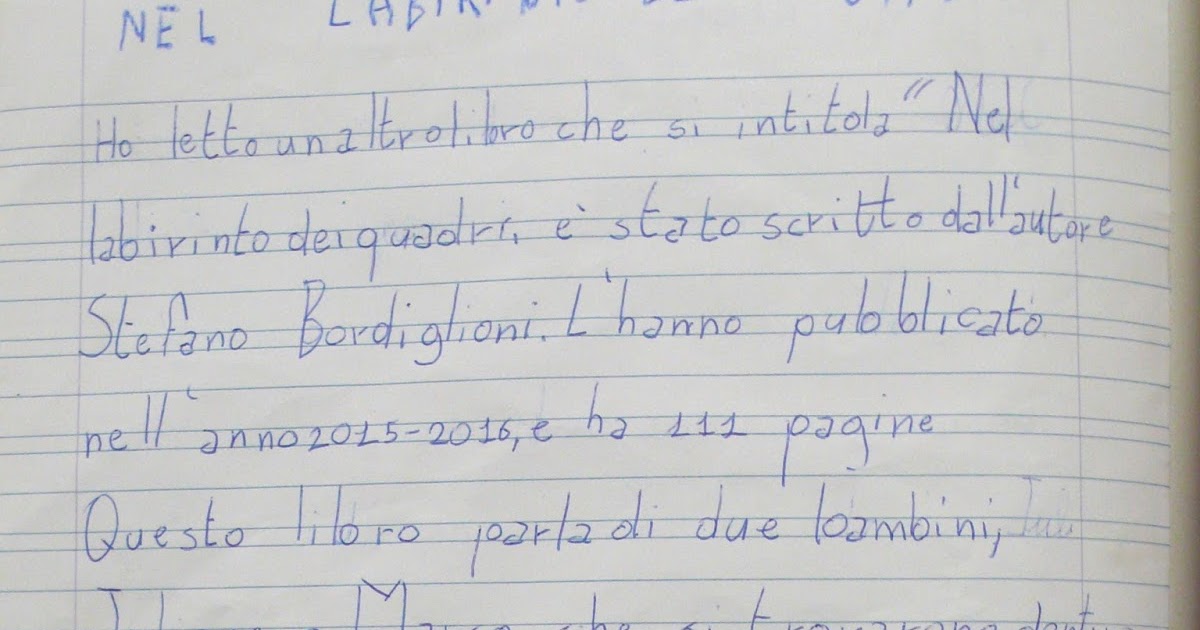 NEL LABIRINTO
Ho letto un altro libro che si intitola "Nel
labirinto dei quadri, è stato scritto dall'autore
Stefano Bordiglioni. L'hanno pubblicato
nell'anno 2015-2016, e ha 111 pagine
Questo libro parla di due bambini,
che si trovarono